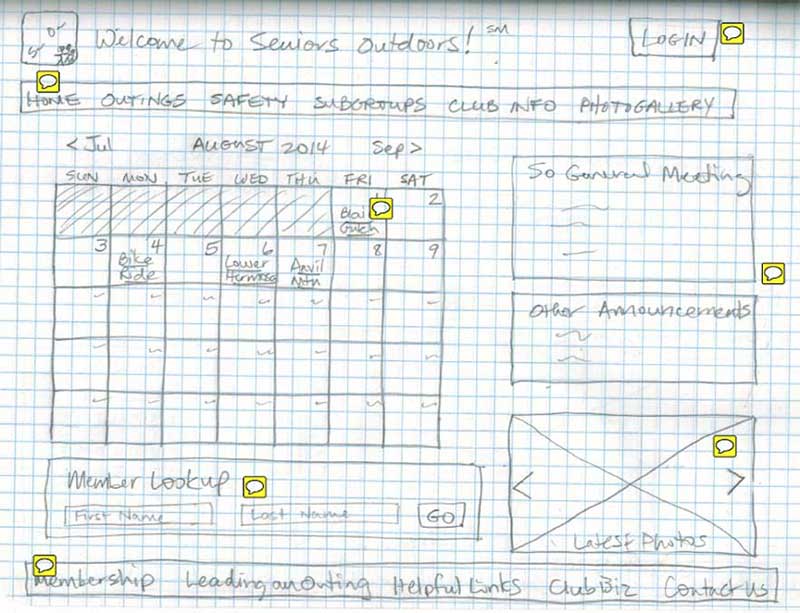 Welcome to Seniors Outdoors! SM
LOGIN
HOME OUTINGS SAFETY SUBGROUPS CLUB INFO PHOTOGALLERY
< Jul AUGUST 2014 Sep >
SUN MON TUE WED THU FRI SAT
2
Gulch
3 4 5 6 7 8 9
Bike Ride
Lower Hermosa
Anvil Mtn
So General Meeting
Other Announcements
Member Lookup
First Name Last Name GO
< >
Latest Photos
Membership Leading an Outing Helpful Links Club Biz Contact Us